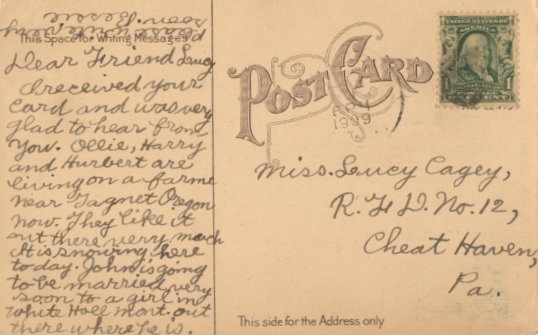 This Space for Writing Messages
Dear Friend Lucy
I received your
card and was very
glad to hear from
you. Ollie, Harry
and Hurbert are
living on a farme
near Tagnet Oregon
now. They like it
out there verry much
It is snowing here
to day. John is going
to be married very
soon to a girl in
White Hall mont. out
there where he is.
POST CARD
UNITED STATES OF
1
Miss. Lucy Cagey,
R. F. D. No. 12,
Cheat Haven,
Pa.
This side for the Address only